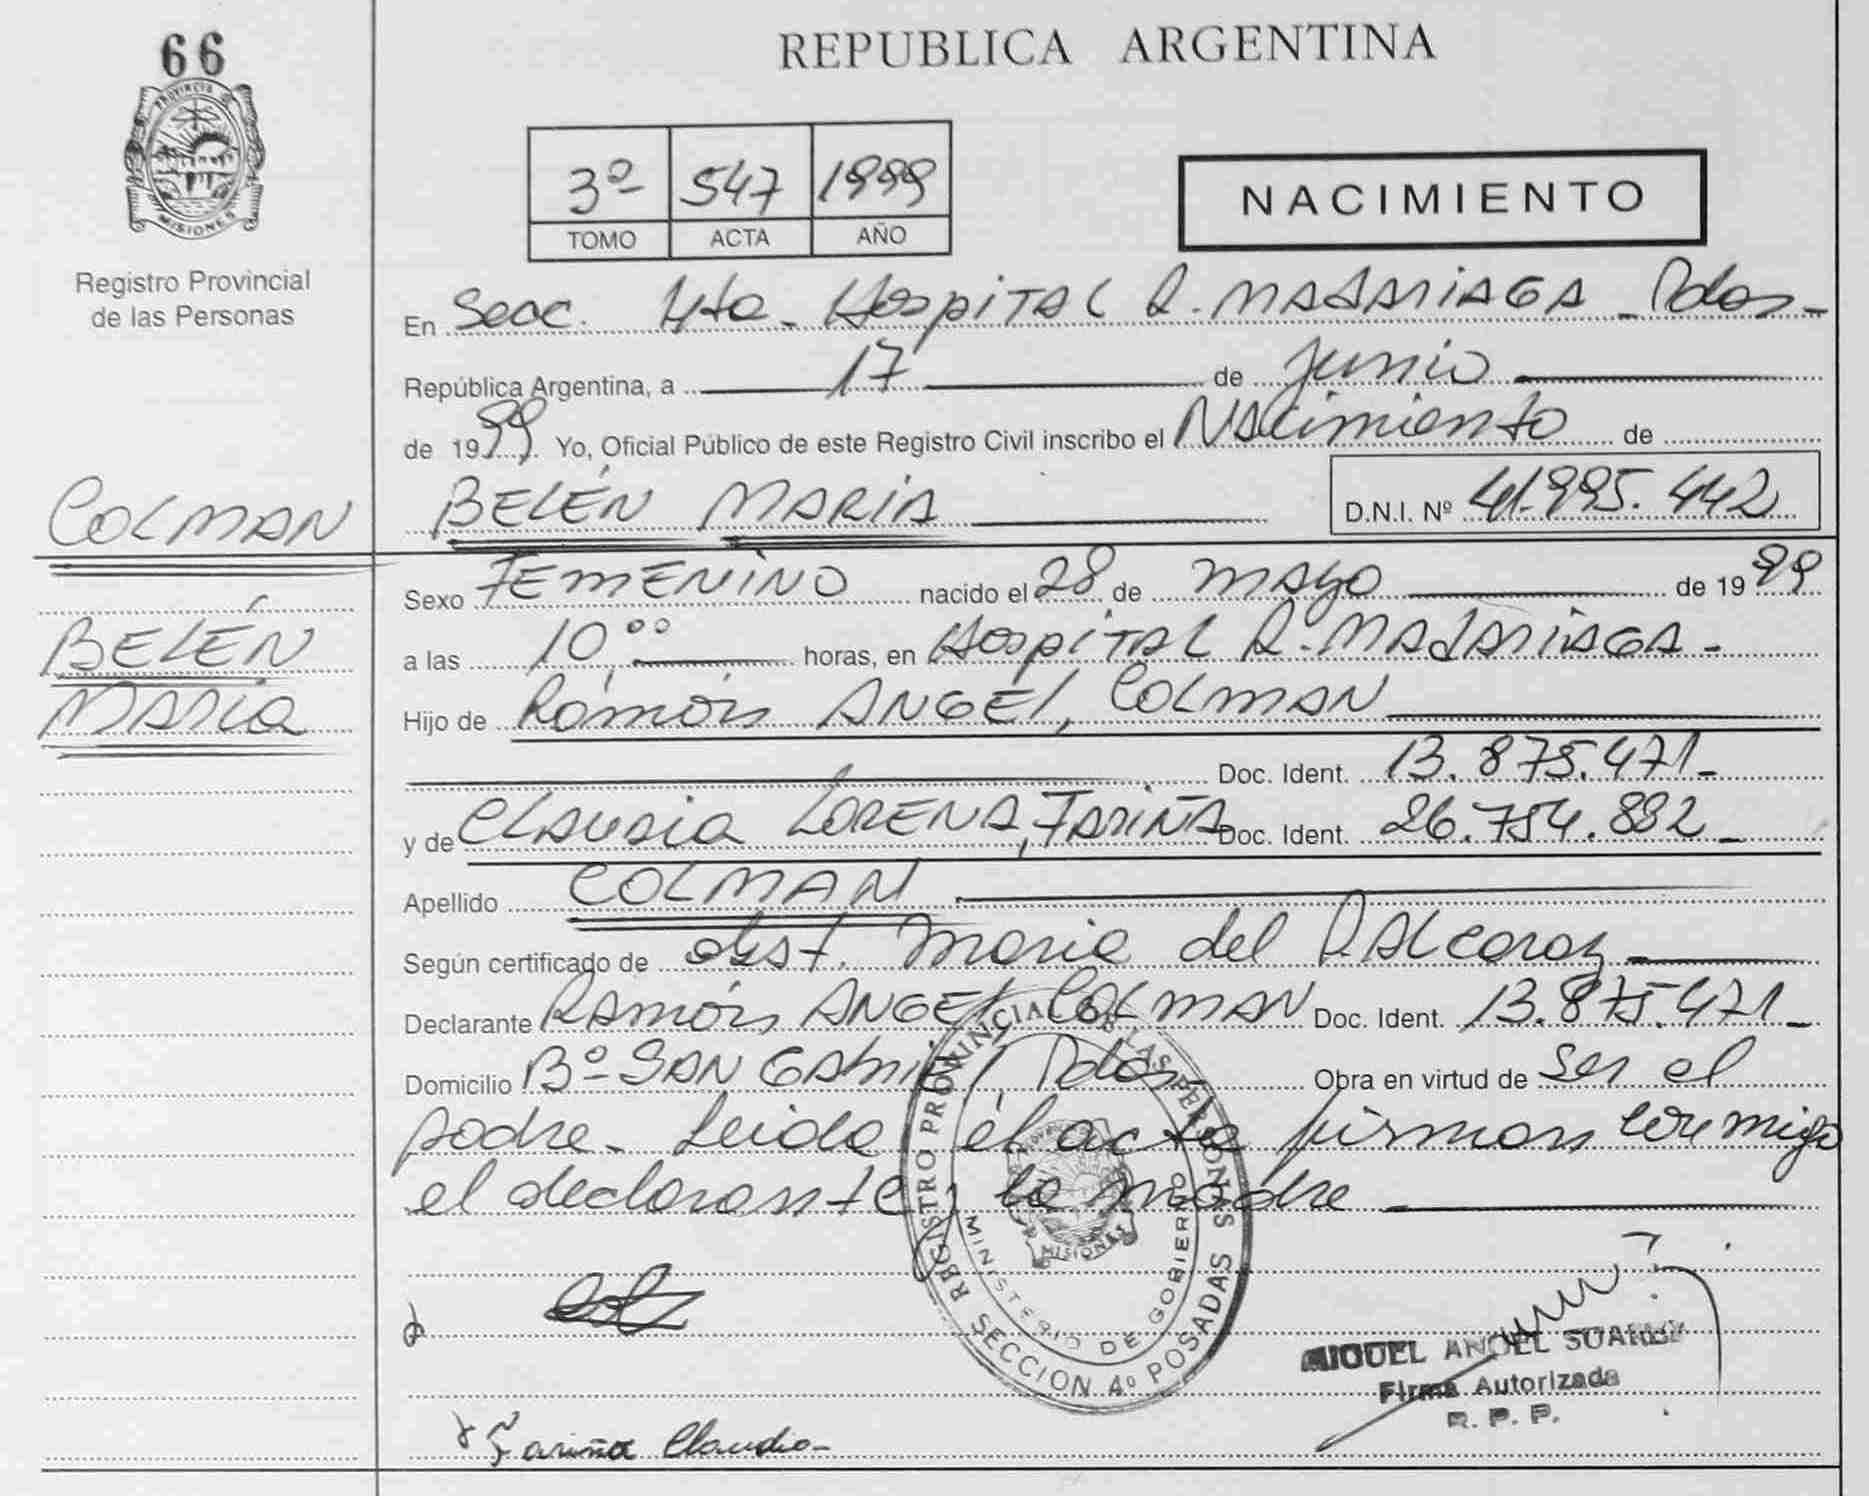 66
PROVINCIA DE
MISIONES
Registro Provincial
de las Personas
REPUBLICA ARGENTINA
3º 547 1999
TOMO ACTA AÑO
NACIMIENTO
En Secc. 4ta. Hospital R. Madariaga - Pdas-
República Argentina, a 17 de junio
de 1999. Yo, Oficial Público de este Registro Civil inscribo el Nacimiento de
COLMAN BELÉN MARIA D.N.I. Nº 41.995.442
Sexo FEMENINO nacido el 28 de mayo de 1999
BELÉN a las 10,00 horas, en Hospital R. Madariaga-
MARIA Hijo de Ramón ANGEL, COLMAN
Doc. Ident. 13.875.471-
y de CLAUDIA LORENA, FARIÑA Doc. Ident. 26.754.882-
Apellido COLMAN
Según certificado de obst. Maria del R. Alcaraz
Declarante Ramón ANGEL COLMAN Doc. Ident. 13.875.471-
Domicilio Bº San Gabriel, Pdas- Obra en virtud de ser el
padre- Leida el acta firman conmigo
el declarante y la madre
REGISTRO PROVINCIAL DE LAS PERSONAS
MINISTERIO DE GOBIERNO
MISIONES
SECCION 4º POSADAS
MIGUEL ANGEL SUAREZ
Firma Autorizada
R. P. P.
Fariña Claudia-